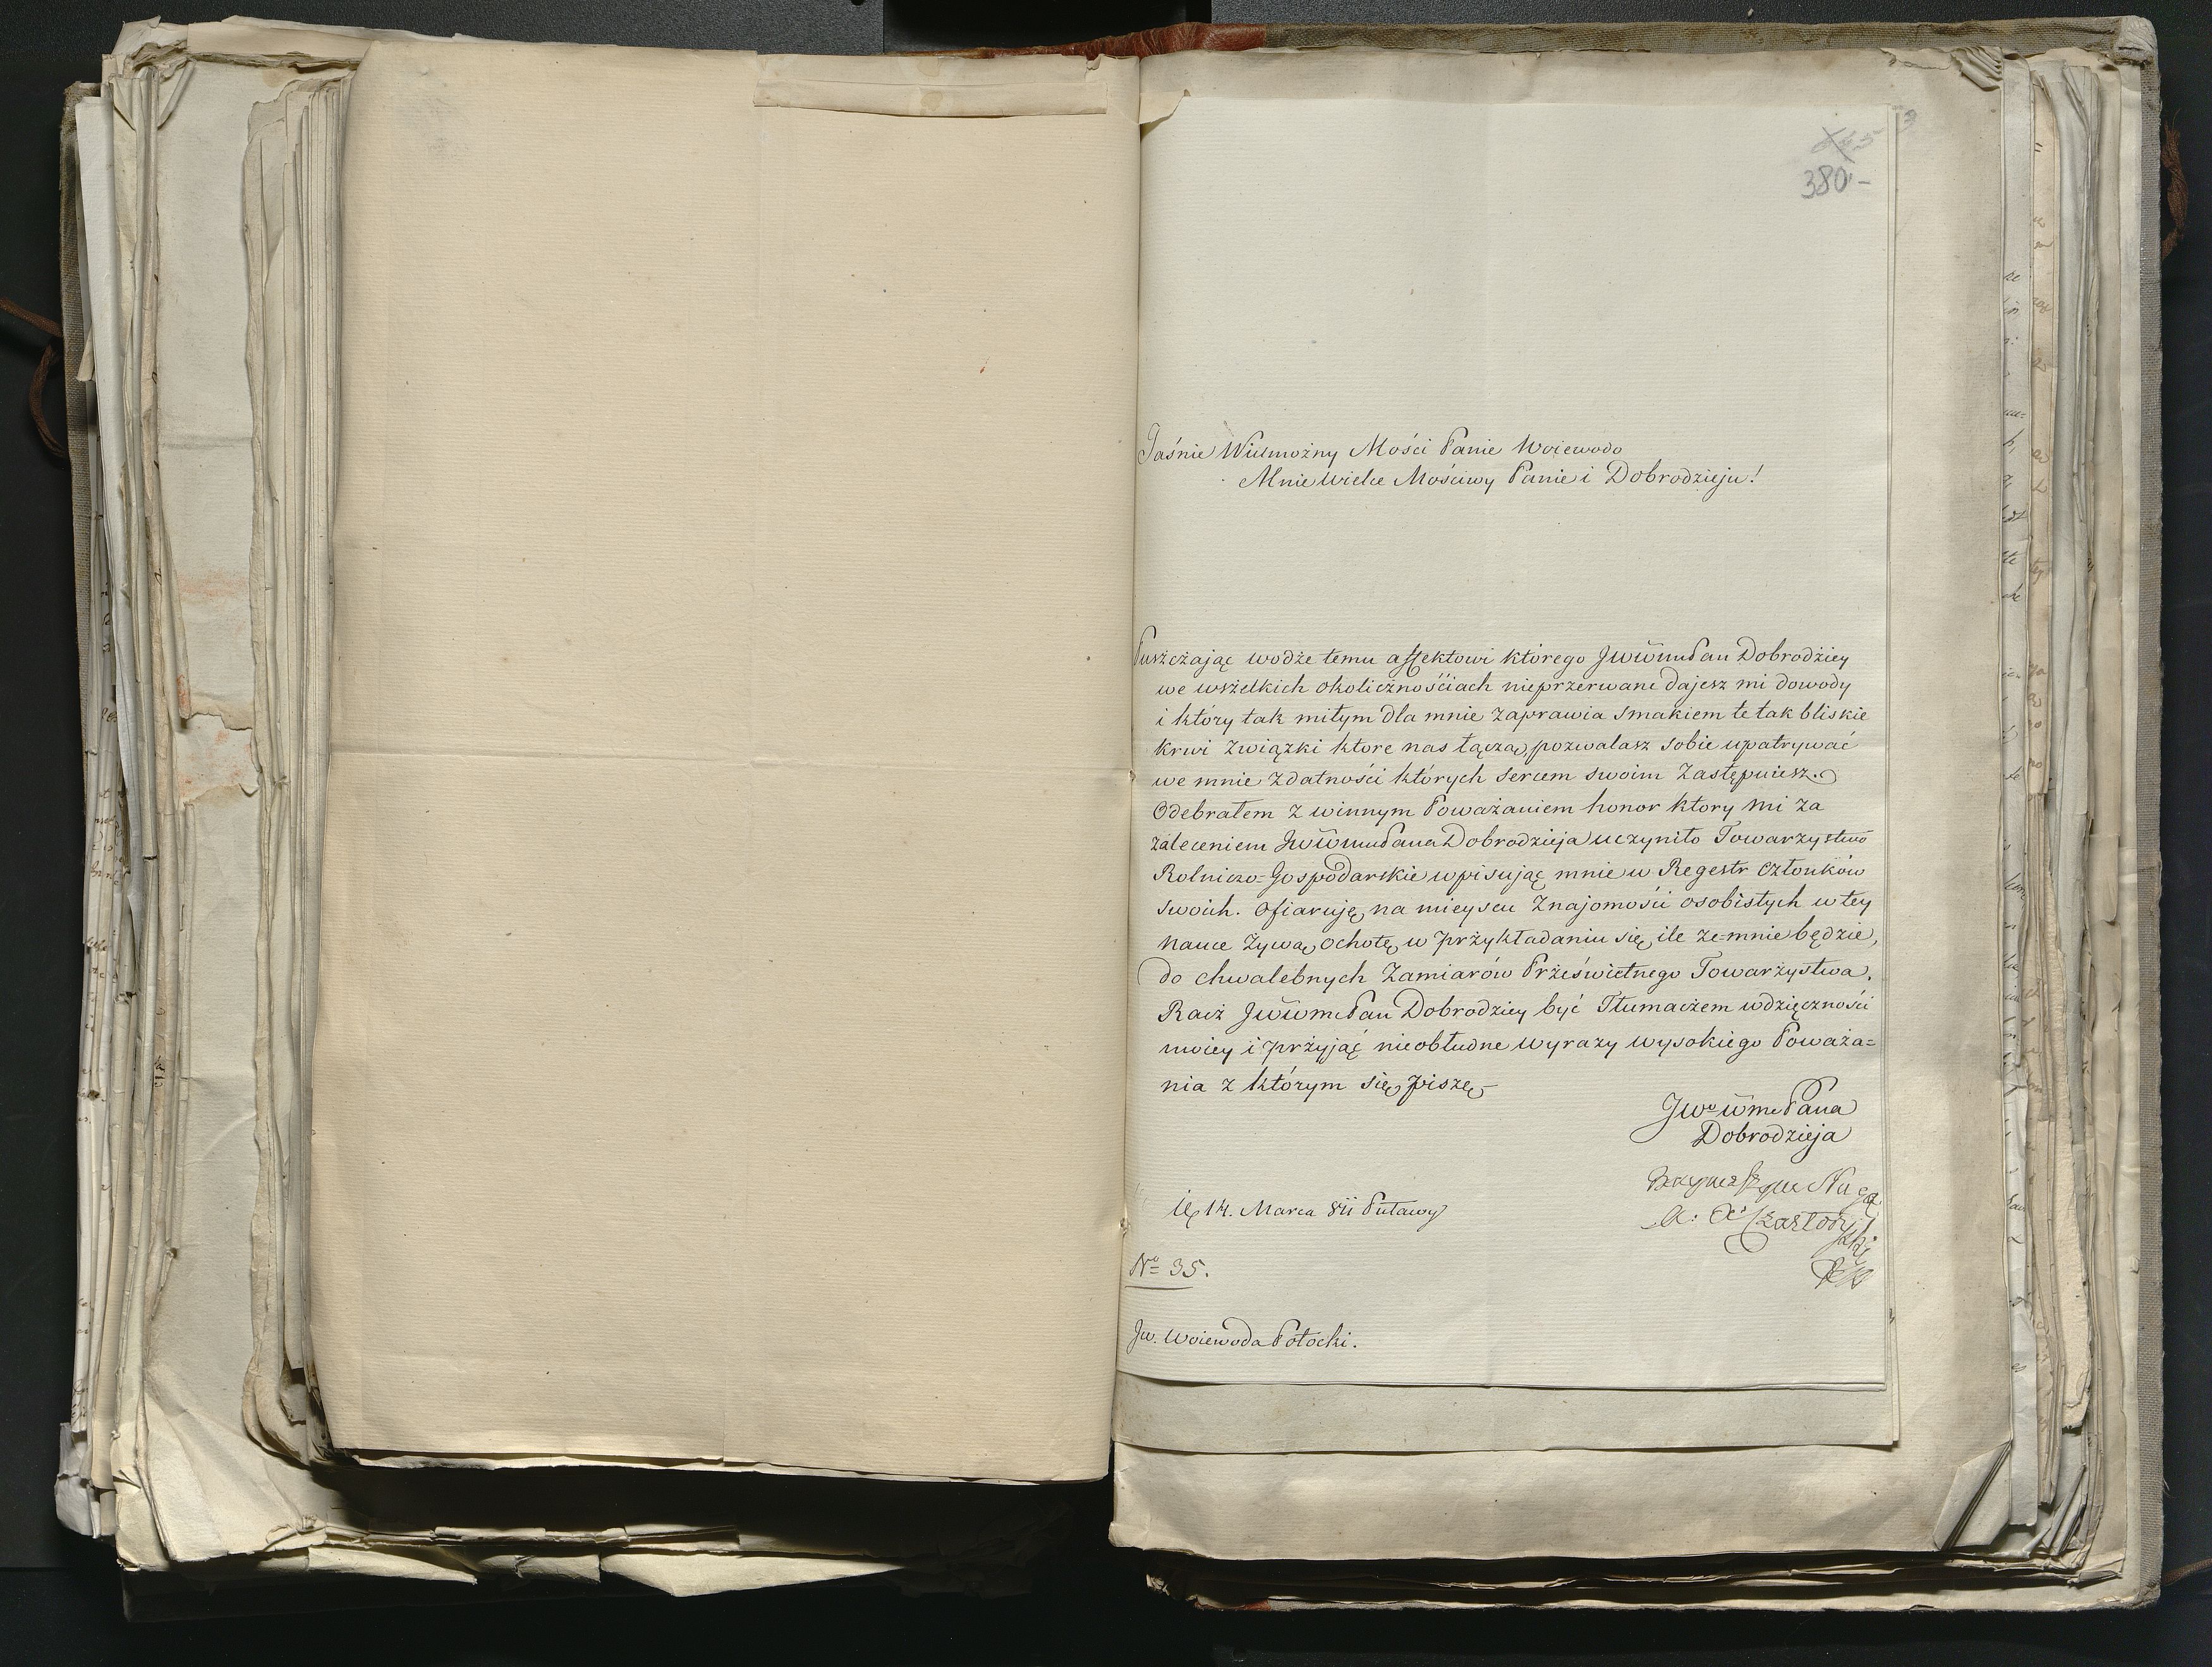 380 -
Jaśnie Wielmożny Mości Panie Woiewodo
Mnie Wielce Mościwy Panie i Dobrodzieju!
Puszczając wodze temu affektowi którego JWWmu Pan Dobrodziey
we wszelkich okolicznościach nieprzerwane dajesz mi dowody
i który tak miłym dla mnie zaprawia smakiem te tak bliskie
krwi związki ktore nas łączą, pozwalasz sobie upatrywać
we mnie zdatności których sercem swoim zastępuiesz.
Odebrałem z winnym Poważaniem honor ktory mi za
zaleceniem JWWmu Pana Dobrodzieja uczyniło Towarzystwo
Rolniczo=Gospodarskie wpisując mnie w Regestr Członków
swoich. Ofiaruję na mieyscu Znajomości osobistych w tey
nauce żywą ochotę w przykładaniu się, ile ze=mnie będzie,
do chwalebnych Zamiarów Prześwietnego Towarzystwa.
Racz JWWme Pan Dobrodziey być Tłumaczem wdzięczności
moiey i przyjąć nieobłudne wyrazy wysokiego Poważa=
nia z którym się piszę
JWo Wme Pana
Dobrodzieja
Sługa
A: X: Czartory
ski
14. Marca 811 Puławy
No 35.
Jw. Woiewoda Potocki.